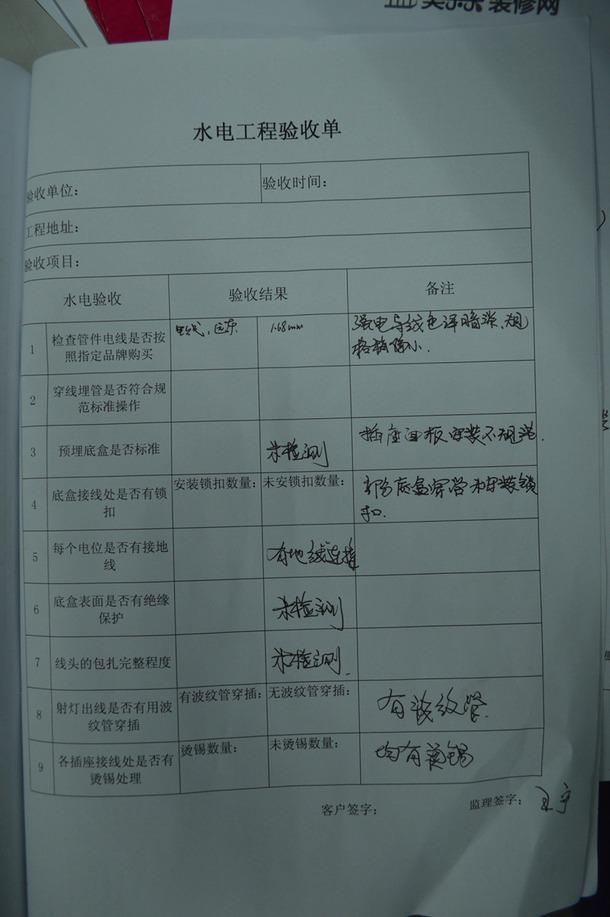 装修网
水电工程验收单
验收单位： 验收时间：
工程地址：
验收项目：
水电验收 验收结果 备注
1 检查管件电线是否按 电线，远东 1.68mm 强电导线色泽暗淡，规
照指定品牌购买 格偏小.
2 穿线埋管是否符合规
范标准操作
3 预埋底盒是否标准 未检测 插座面板安装不规范.
4 底盒接线处是否有锁 安装锁扣数量： 未安锁扣数量： 部分底盒穿管未安装锁
扣 扣.
5 每个电位是否有接地 有地线连接
线
6 底盒表面是否有绝缘 未检测
保护
7 线头的包扎完整程度 未检测.
8 射灯出线是否有用波 有波纹管穿插： 无波纹管穿插： 有波纹管.
纹管穿插
9 各插座接线处是否有 烫锡数量： 未烫锡数量： 均有烫锡
烫锡处理
客户签字： 监理签字：